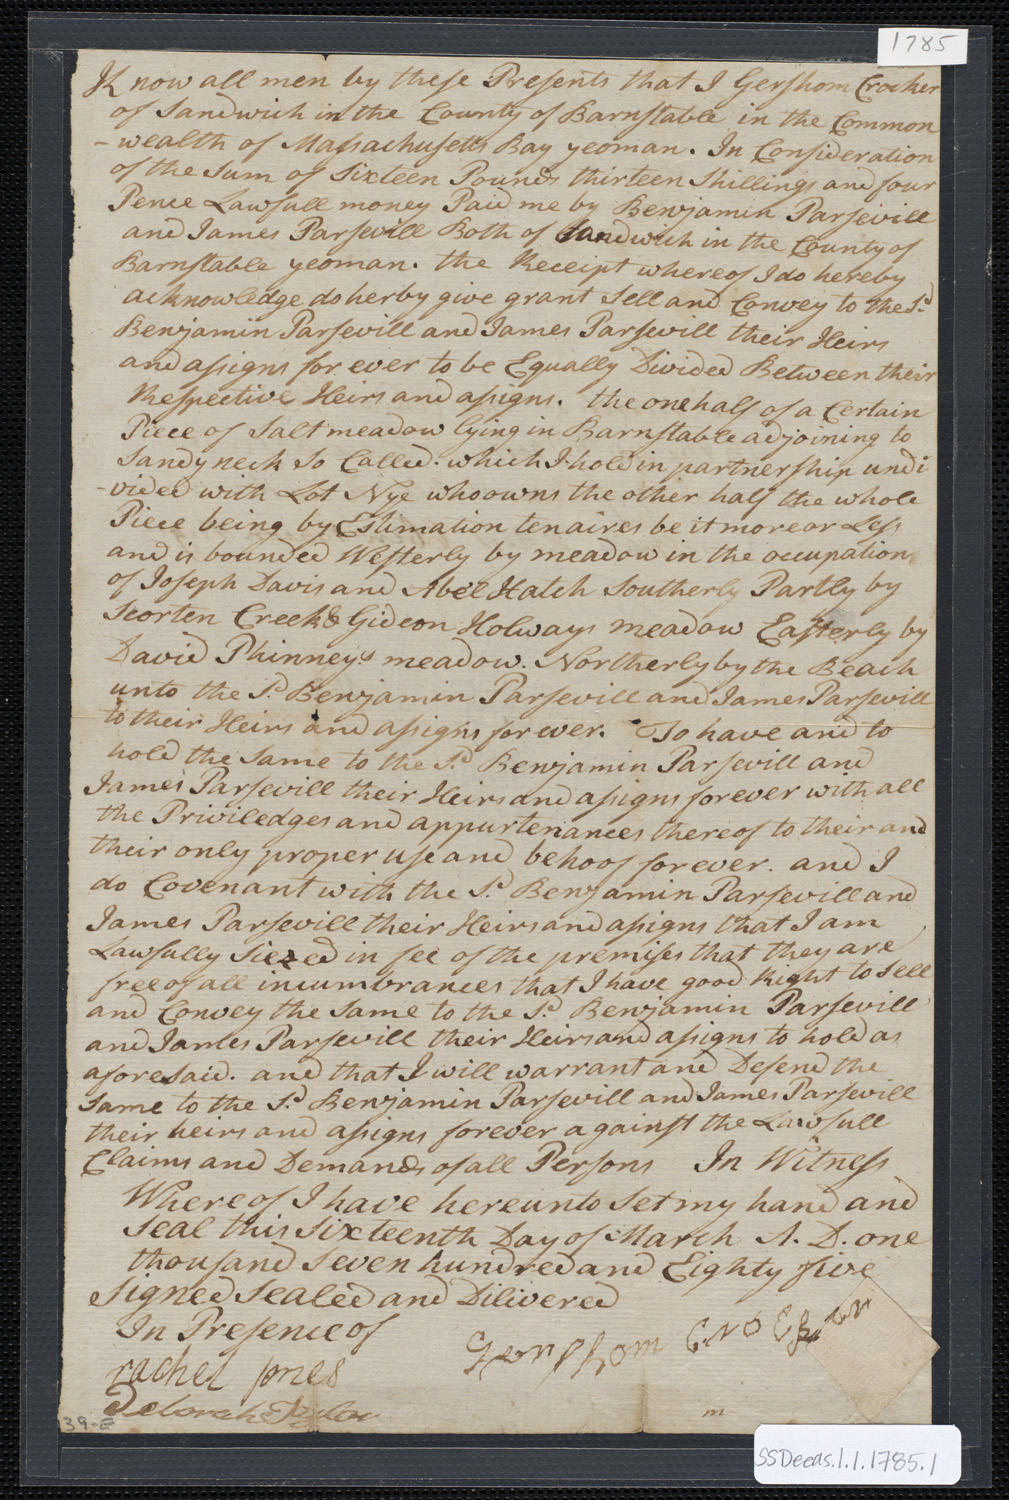 1785
Know all men by these Presents that I Gershom Crocker
of Sandwich in the County of Barnstable in the Common
-wealth of Massachusetts Bay yeoman. In Consideration
of the Sum of Sixteen Pounds thirteen Shillings and four
Pence Lawfull money Paid me by Benjamin Parsevill
and James Parsevill Both of Sandwich in the County of
Barnstable yeoman. the Receipt whereof I do hereby
acknowledge do herby give grant Sell and Convey to the Sd
Benjamin Parsevill and James Parsevill their Heirs
and assigns for ever to be Equally Divided Between their
Respective Heirs and assigns. the one half of a Certain
Piece of Salt meadow lying in Barnstable adjoining to
Sandy neck So Called. which I hold in partnership undi
-vided with Lot Nye who owns the other half the whole
Piece being by Estimation ten aires be it more or Less
and is bounded Westerly by meadow in the occupation
of Joseph Davis and Abel Hatch Southerly Partly by
Scorten Creek & Gideon Holways meadow Easterly by
David Phinney's meadow. Northerly by the Beach
unto the Sd Benjamin Parsevill and James Parsevill
to their Heirs and assigns for ever. To have and to
hold the Same to the Sd Benjamin Parsevill and
James Parsevill their Heirs and assigns forever with all
the Priviledges and appurtenances thereof to their and
their only proper use and behoof forever. and I
do Covenant with the Sd Benjamin Parsevill and
James Parsevill their Heirs and assigns that I am
Lawfully Siezed in fee of the premises that they are
free of all incumbrances that I have good Right to Sell
and Convey the Same to the Sd Benjamin Parsevill
and James Parsevill their Heirs and assigns to hold as
aforesaid. and that I will warrant and Defend the
Same to the Sd Benjamin Parsevill and James Parsevill
their heirs and assigns forever against the Lawfull
Claims and Demands of all Persons In Witness
Whereof I have hereunto Set my hand and
Seal this Sixteenth Day of March A. D. one
thousand Seven hundred and Eighty five
Signed Sealed and Dilivered
In Presence of
Gershom Crocker
rachel jones
Deborah
39-E
m
SSDeeds.1.1.1785.1